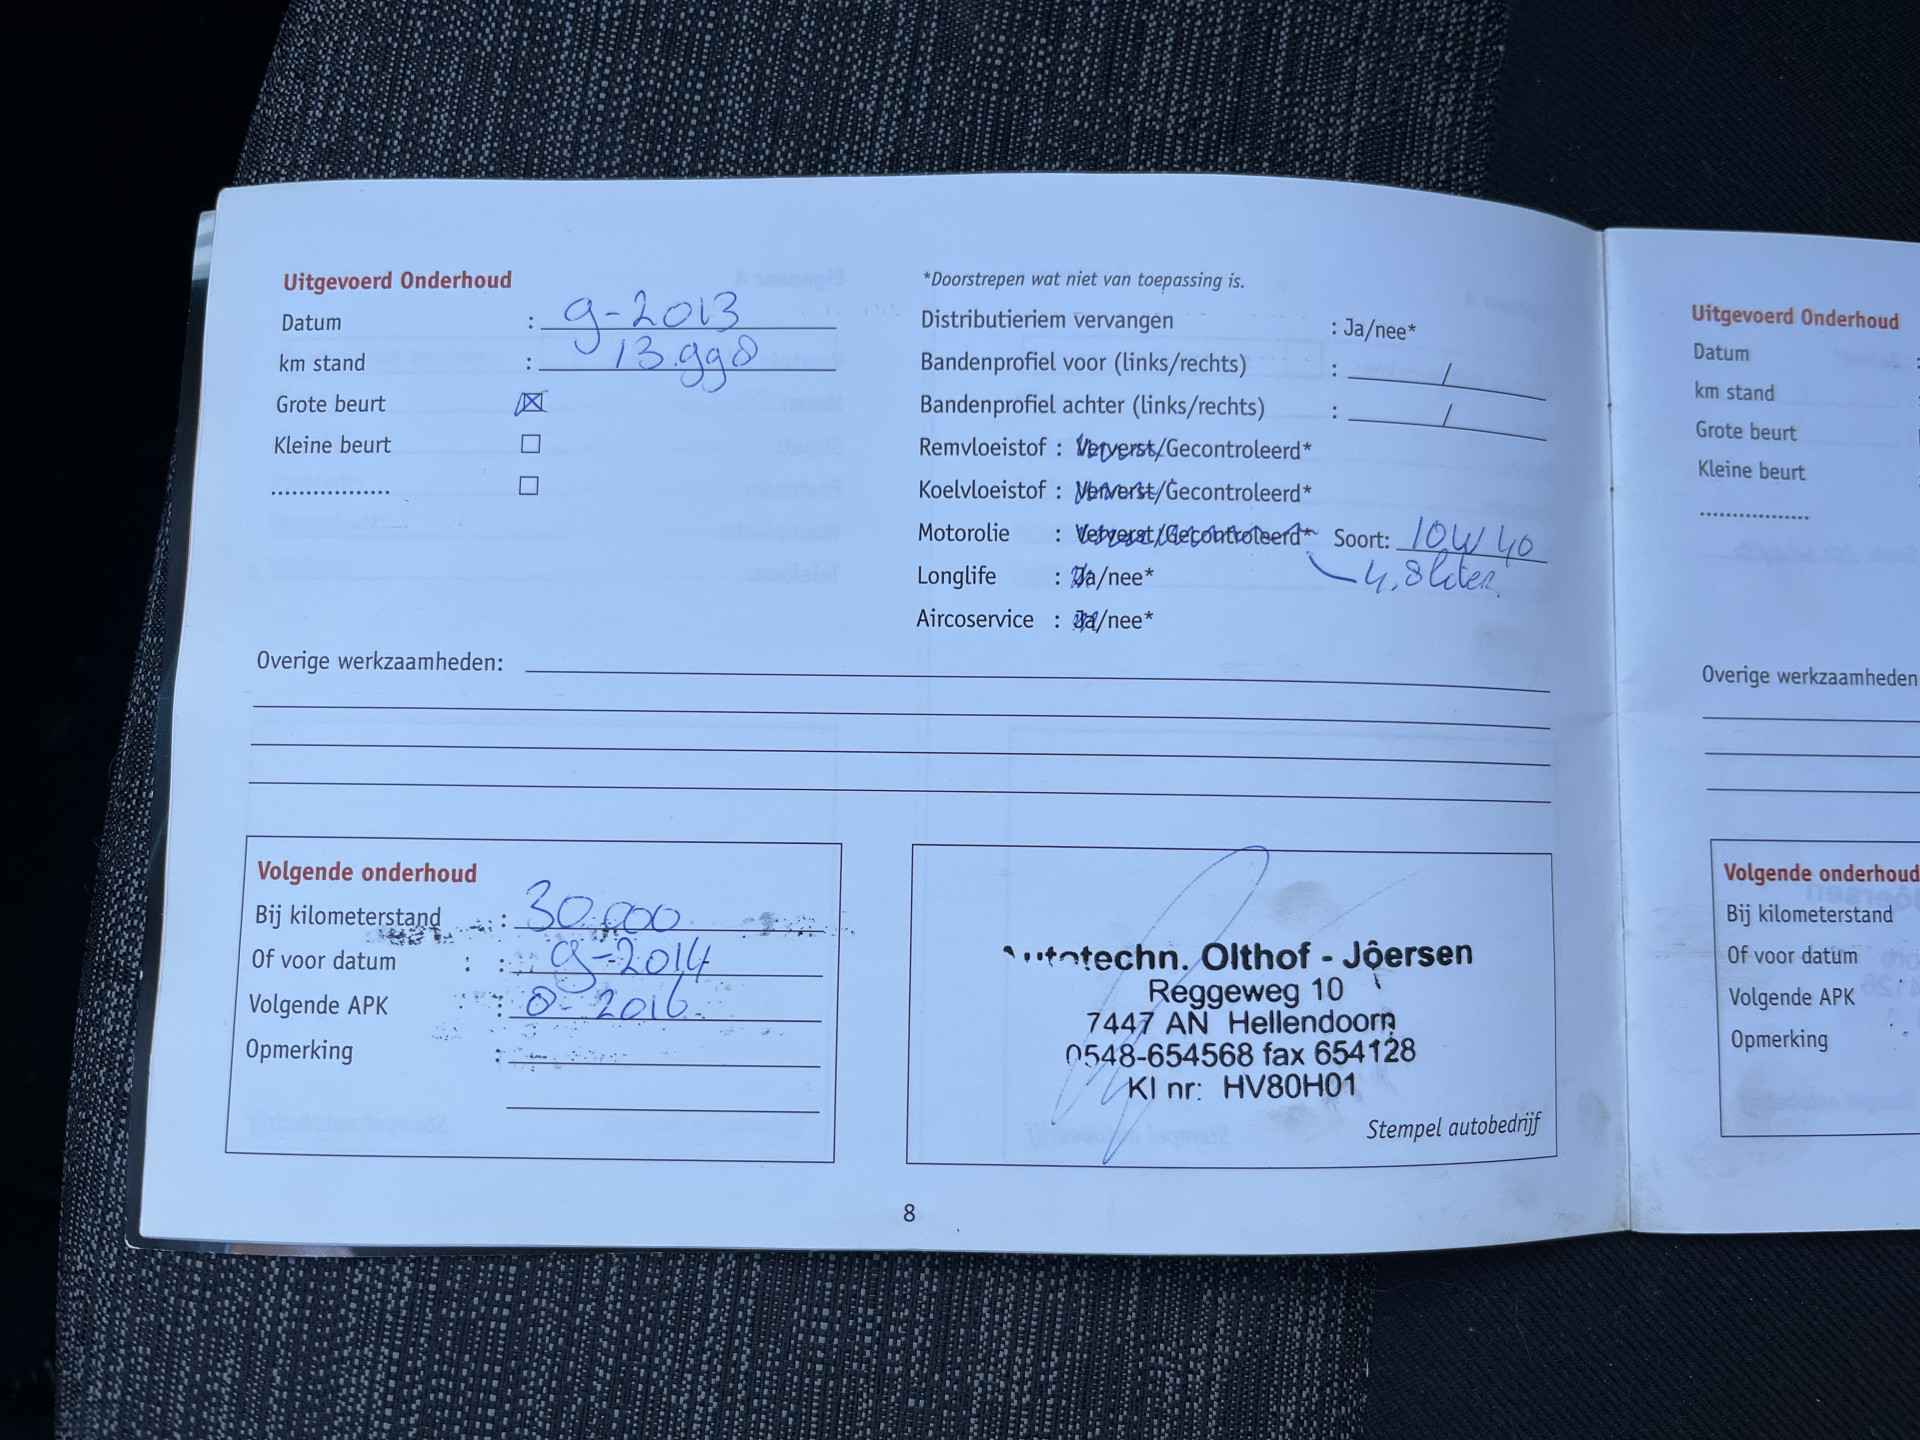 Uitgevoerd Onderhoud
Datum : 9-2013
km stand : 13.998
Grote beurt
Kleine beurt
.................
*Doorstrepen wat niet van toepassing is.
Distributieriem vervangen : Ja/nee*
Bandenprofiel voor (links/rechts) : /
Bandenprofiel achter (links/rechts) : /
Remvloeistof : Ververst/Gecontroleerd*
Koelvloeistof : Ververst/Gecontroleerd*
Motorolie : Ververst/Gecontroleerd* Soort: 10W40
4,8 liter.
Longlife : Ja/nee*
Aircoservice : Ja/nee*
Overige werkzaamheden:
Volgende onderhoud
Bij kilometerstand : 30.000
Of voor datum : : 9-2014
Volgende APK : 8-2016
Opmerking :
Autotechn. Olthof - Jôersen
Reggeweg 10
7447 AN Hellendoorn
0548-654568 fax 654128
KI nr: HV80H01
Stempel autobedrijf
8
Uitgevoerd Onderhoud
Datum
km stand
Grote beurt
Kleine beurt
.................
Overige werkzaamheden
Volgende onderhoud
Bij kilometerstand
Of voor datum
Volgende APK
Opmerking